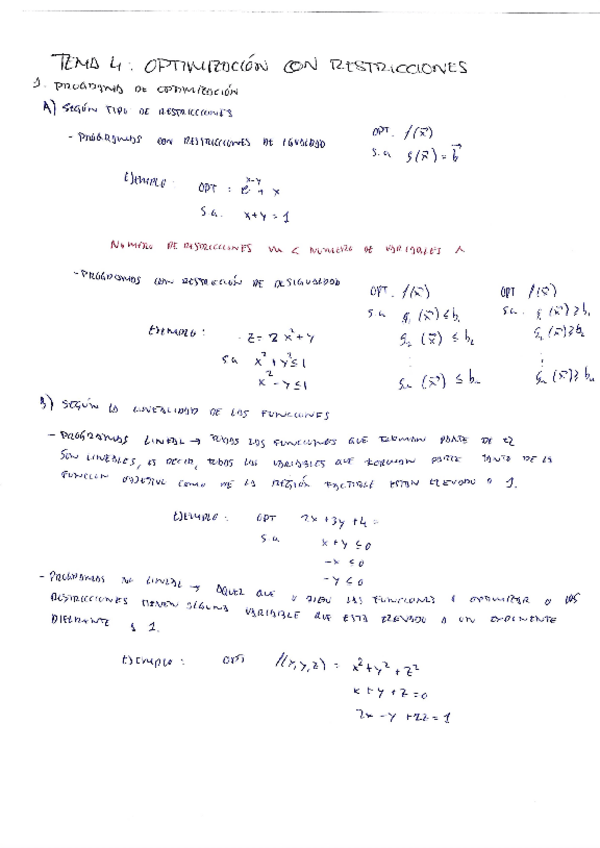 TEMA 4: OPTIMIZACIÓN CON RESTRICCIONES
1. PROGRAMAS DE OPTIMIZACIÓN
A) SEGÚN TIPO DE RESTRICCIONES
- PROGRAMAS CON RESTRICCIONES DE IGUALDAD
OPT. f(x⃗)
s.a g(x⃗) = b⃗
EJEMPLO: OPT: e^(x-y) + x
s.a. x+y = 1
NÚMERO DE RESTRICCIONES < NÚMERO DE VARIABLES
- PROGRAMAS CON RESTRICCIÓN DE DESIGUALDAD
OPT. f(x⃗) OPT f(x⃗)
s.a g₁(x⃗) ≤ b₁ s.a. g₁(x⃗) ≥ b₁
g₂(x⃗) ≤ b₂ g₂(x⃗) ≥ b₂
⋮ ⋮
gₘ(x⃗) ≤ bₘ gₘ(x⃗) ≥ bₘ
EJEMPLO: z = 2x²+y
s.a x²+y² ≤ 1
x²-y ≤ 1
B) SEGÚN LA LINEALIDAD DE LAS FUNCIONES
- PROGRAMAS LINEAL → TODAS LAS FUNCIONES QUE FORMAN PARTE DE ÉL
SON LINEALES, ES DECIR, TODAS LAS VARIABLES QUE FORMAN PARTE TANTO DE LA
FUNCIÓN OBJETIVO COMO DE LA REGIÓN FACTIBLE ESTÁN ELEVADO A 1.
EJEMPLO: OPT 2x+3y+4=
s.a x+y ≤ 0
-x ≤ 0
-y ≤ 0
- PROGRAMAS NO LINEAL → AQUEL QUE O BIEN LAS FUNCIONES A OPTIMIZAR O LAS
RESTRICCIONES TIENEN ALGUNA VARIABLE QUE ESTÁ ELEVADO A UN EXPONENTE
DIFERENTE A 1.
EJEMPLO: OPT f(x,y,z) = x²+y²+z²
x+y+z=0
2x-y+2z=1